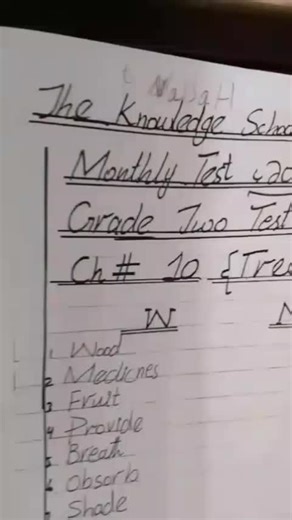 The Knowledge School
Monthly Test
Grade Two Test
Ch# 10 {Tre
W
1. Wood
2. Medicnes
3. Fruit
4. Provide
5. Breath
6. Obsorb
7. Shade